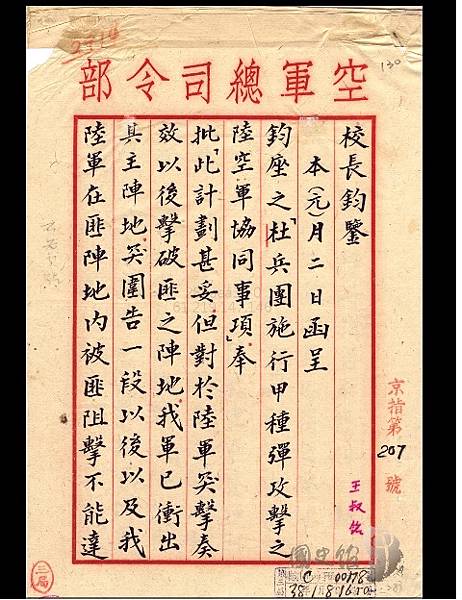 空軍總司令部
校長鈞鑒
本(元)月二日函呈
鈞座之「杜兵團施行甲種彈攻擊之
陸空軍協同事項」奉
批「此計劃甚妥但對於陸軍突擊奏
效以後擊破匪之陣地我軍已衝出
其主陣地突圍告一段以後以及我
陸軍在匪陣地內被匪阻擊不能達
京指第207號
王叔銘
130
三局
國史館